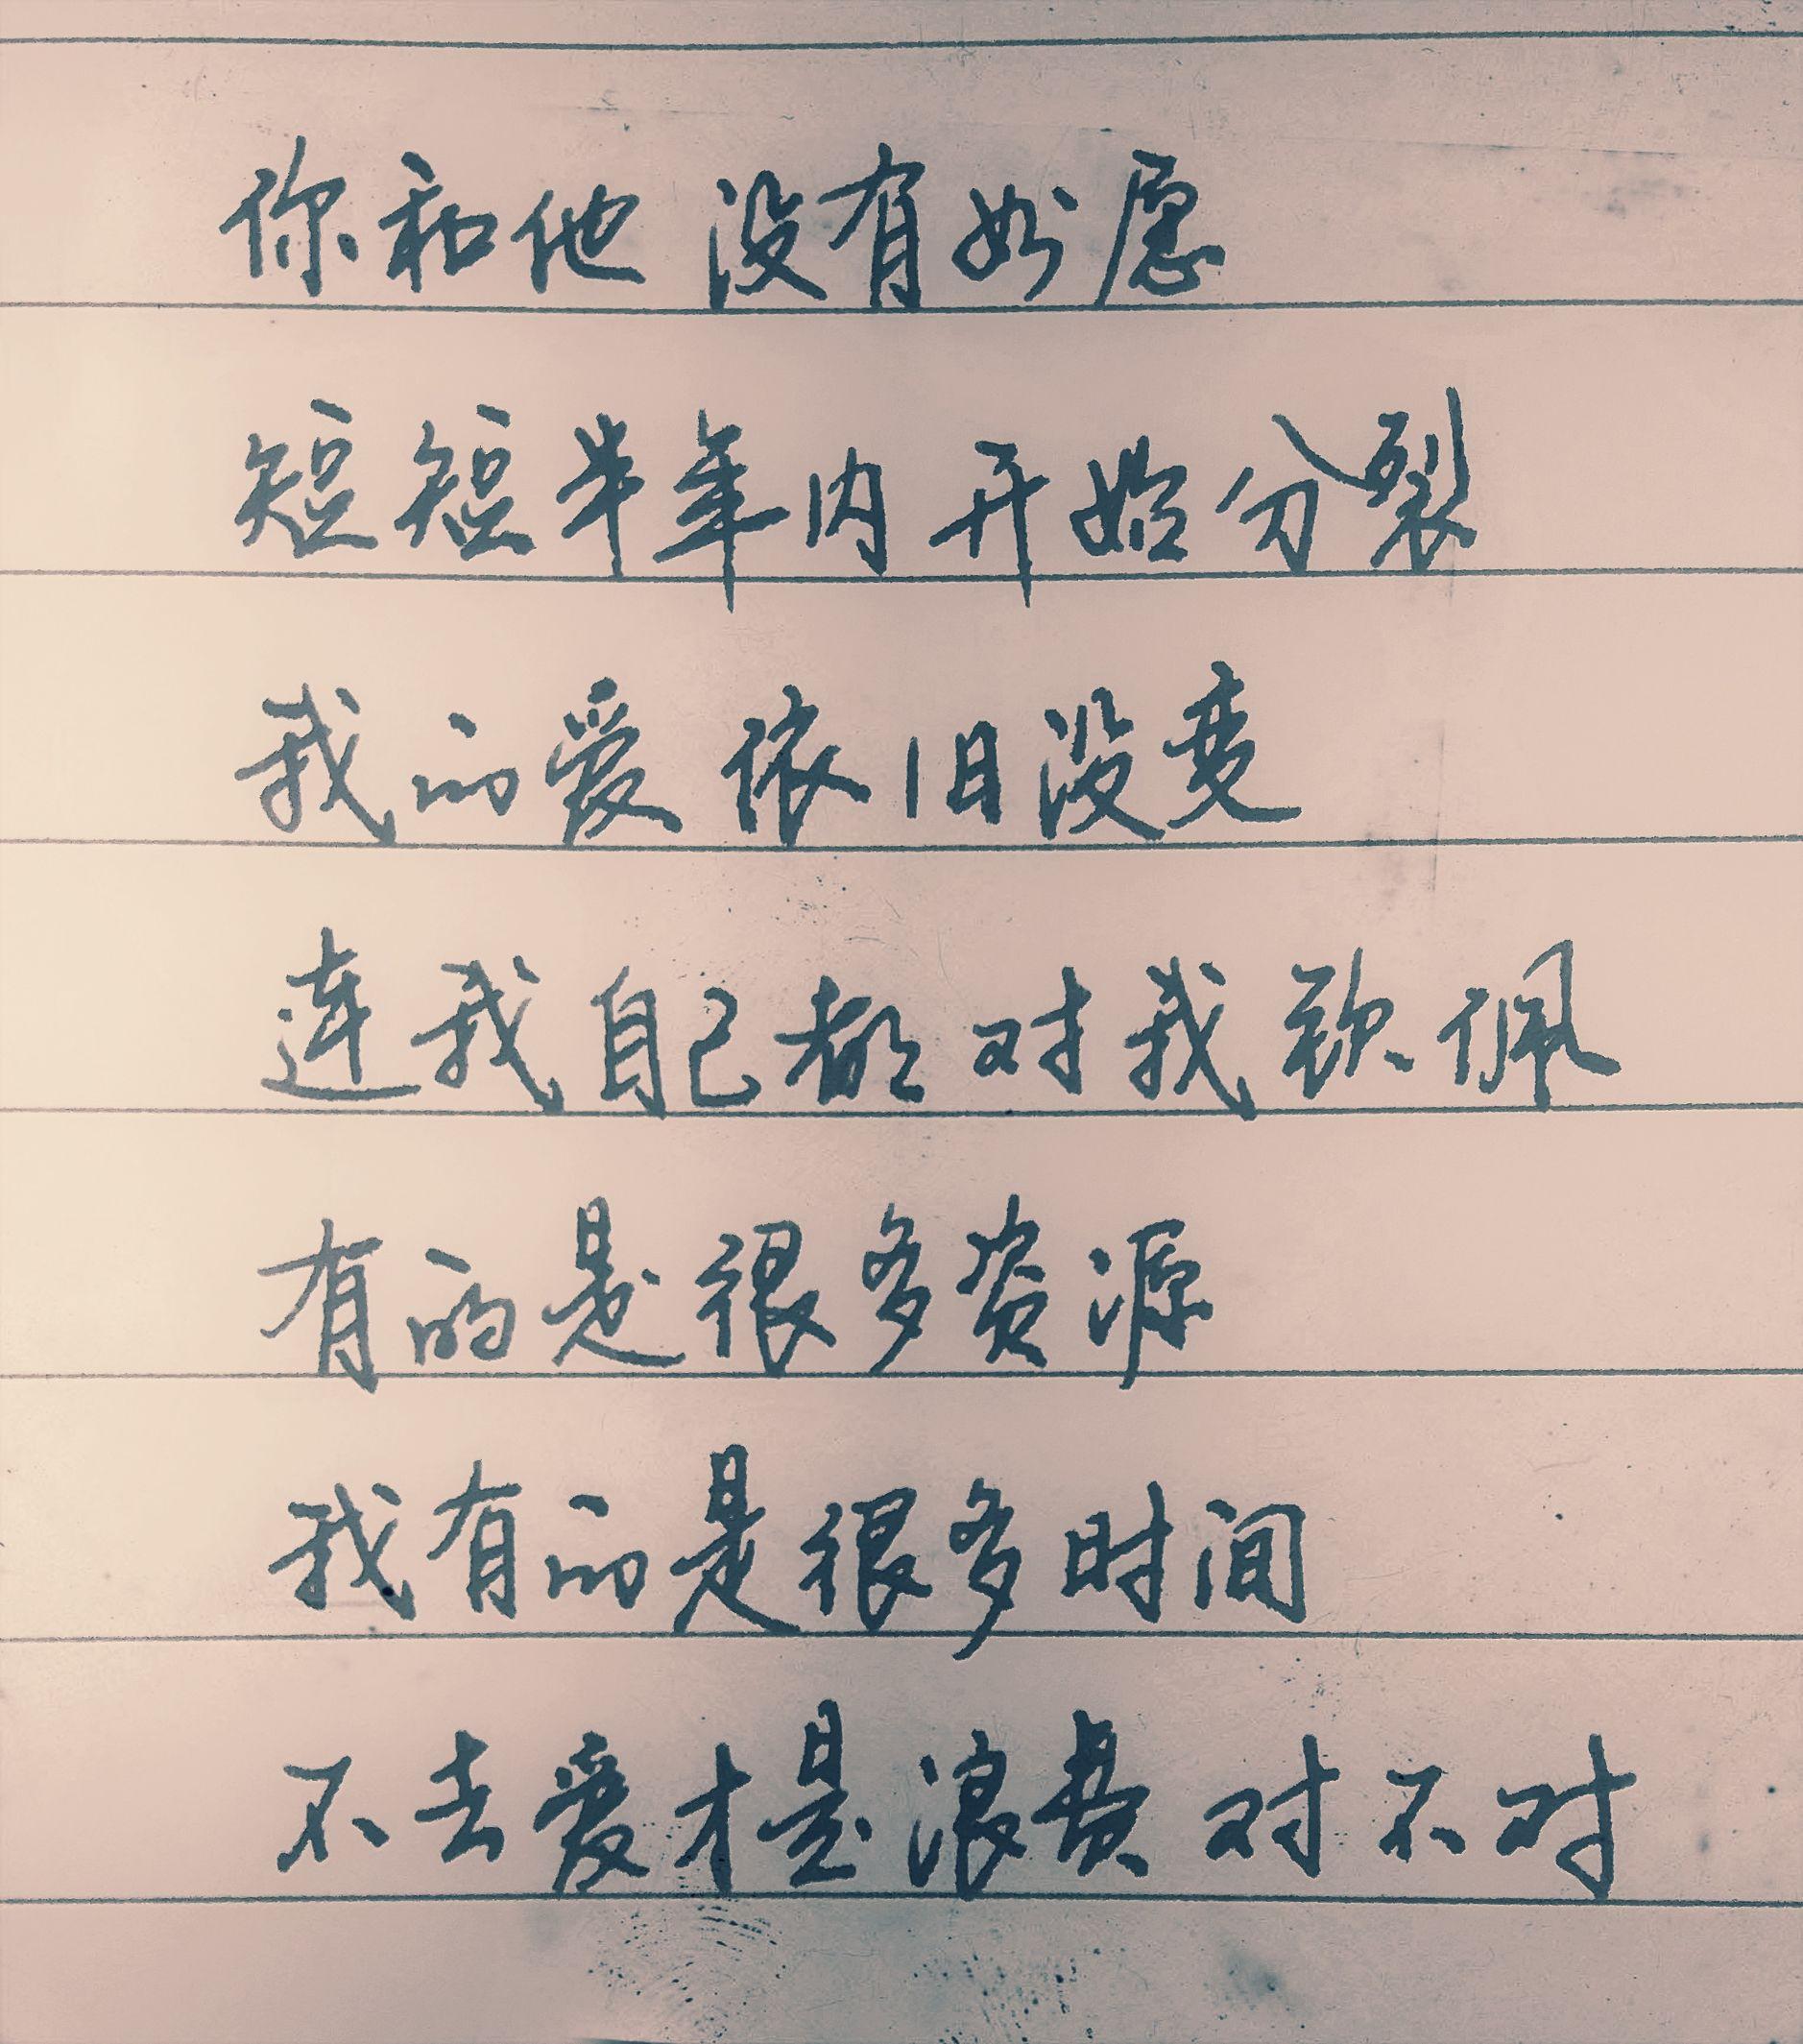 你和他 没有如愿
短短半年内 开始分裂
我的爱 依旧没变
连我自己都 对我钦佩
有的是很多资源
我有的是很多时间
不去爱才是浪费 对不对